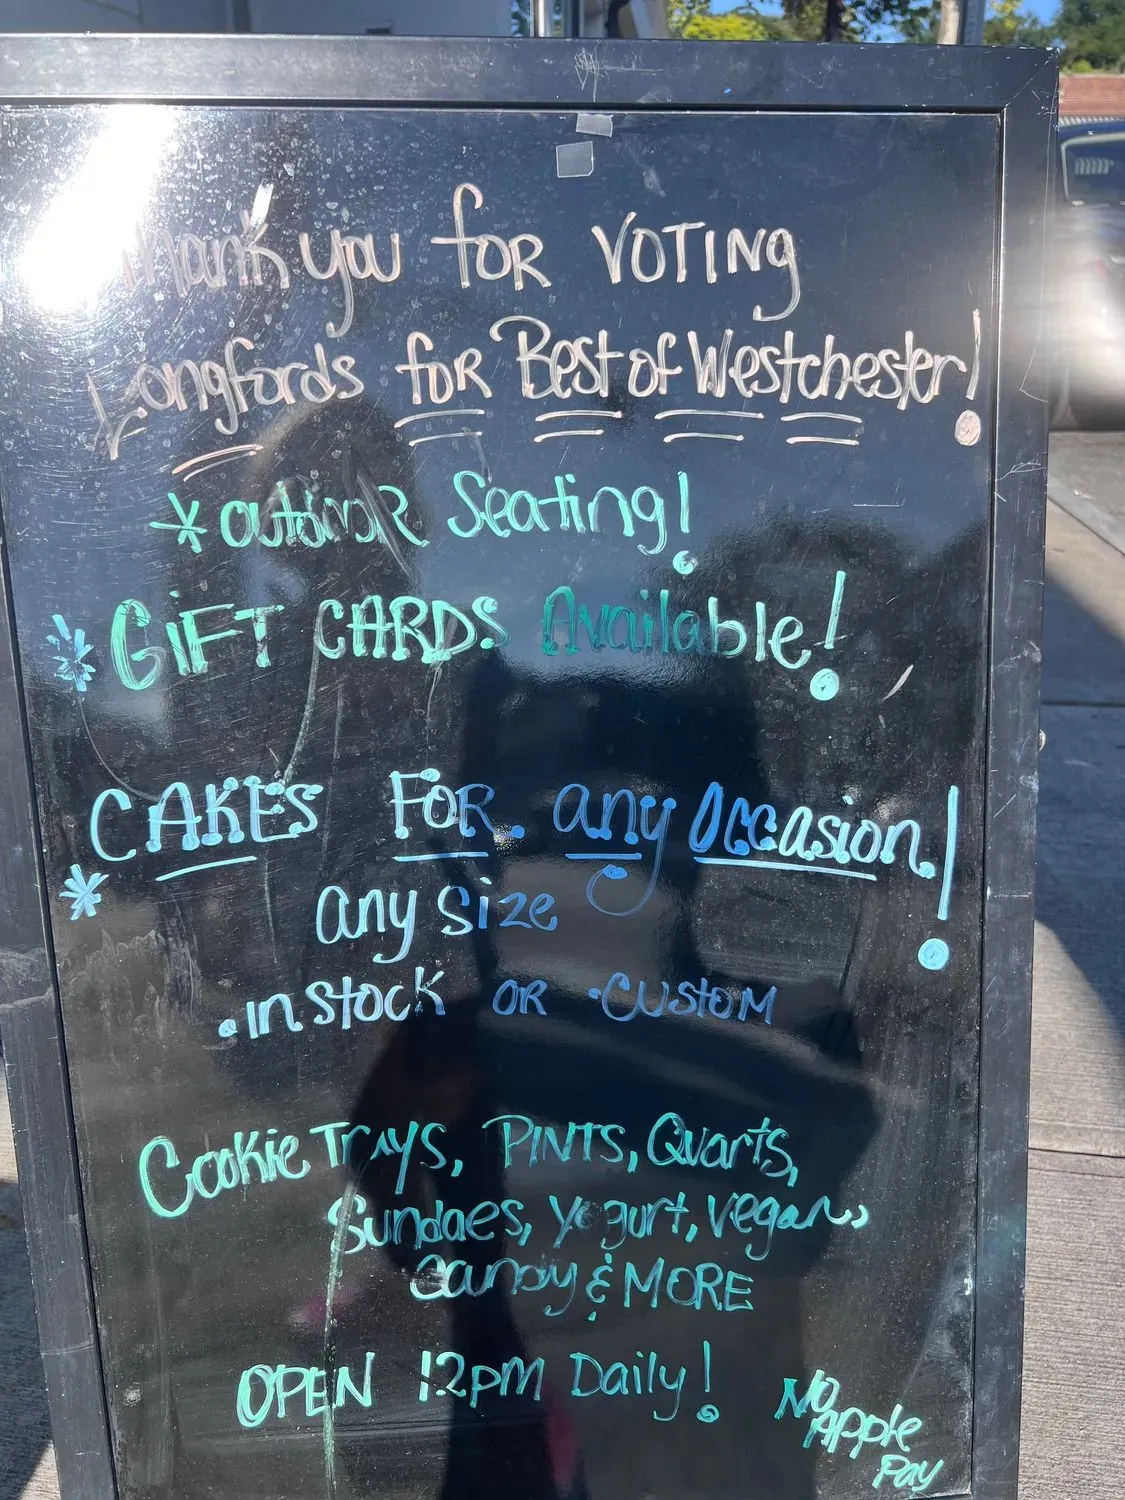 Thank you for VOTING
Longfords for Best of Westchester!
* outdooR Seating!
* GiFT CARDS Available!
CAKES FOR any Occasion!
* any size
. in stock OR . Custom
Cookie Trays, PINTS, Quarts,
Sundaes, Yogurt, Vegan,
Candy & MORE
OPEN 12pm Daily!
No
Apple
Pay